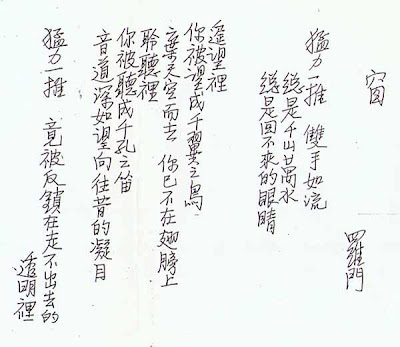 窗
羅門
猛力一推　雙手如流
總是千山萬水
總是回不來的眼睛
遙望裡
你被望成千翼之鳥
棄天空而去　你已不在翅膀上
聆聽裡
你被聽成千孔之笛
音道深如望向往昔的凝目
猛力一推　竟被反鎖在走不出去的
透明裡